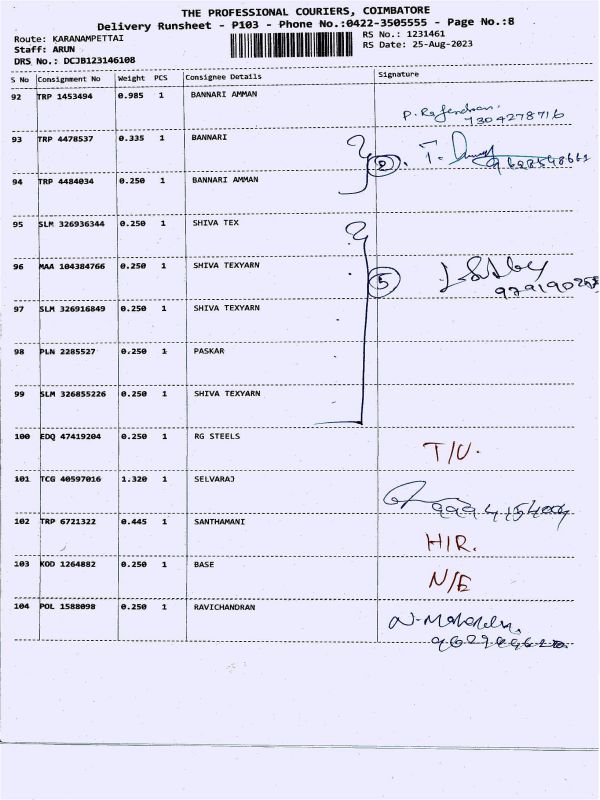 THE PROFESSIONAL COURIERS, COIMBATORE
Delivery Runsheet - P103 - Phone No.:0422-3505555 - Page No.:8
Route: KARANAMPETTAI
RS No.: 1231461
Staff: ARUN
RS Date: 25-Aug-2023
DRS No.: DCJB123146108
S No Consignment No Weight PCS Consignee Details Signature
92 TRP 1453494 0.985 1 BANNARI AMMAN
P. Rajendran.
7304278716
93 TRP 4478537 0.335 1 BANNARI
2
94 TRP 4484034 0.250 1 BANNARI AMMAN
95 SLM 326936344 0.250 1 SHIVA TEX
96 MAA 104384766 0.250 1 SHIVA TEXYARN
5
97 SLM 326916849 0.250 1 SHIVA TEXYARN
98 PLN 2285527 0.250 1 PASKAR
99 SLM 326855226 0.250 1 SHIVA TEXYARN
100 EDQ 47419204 0.250 1 RG STEELS
T/U.
101 TCG 40597016 1.320 1 SELVARAJ
102 TRP 6721322 0.445 1 SANTHAMANI
HIR.
103 KOD 1264882 0.250 1 BASE
N/E
104 POL 1588098 0.250 1 RAVICHANDRAN